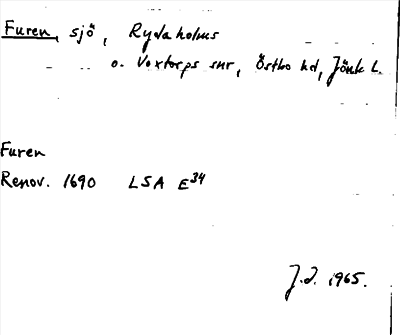 Furen, sjö, Rydaholms
o. Voxtorps snr, Östbo hd, Jönk L.
Furen
Renov. 1690 LSA E34
J.d. 1965.